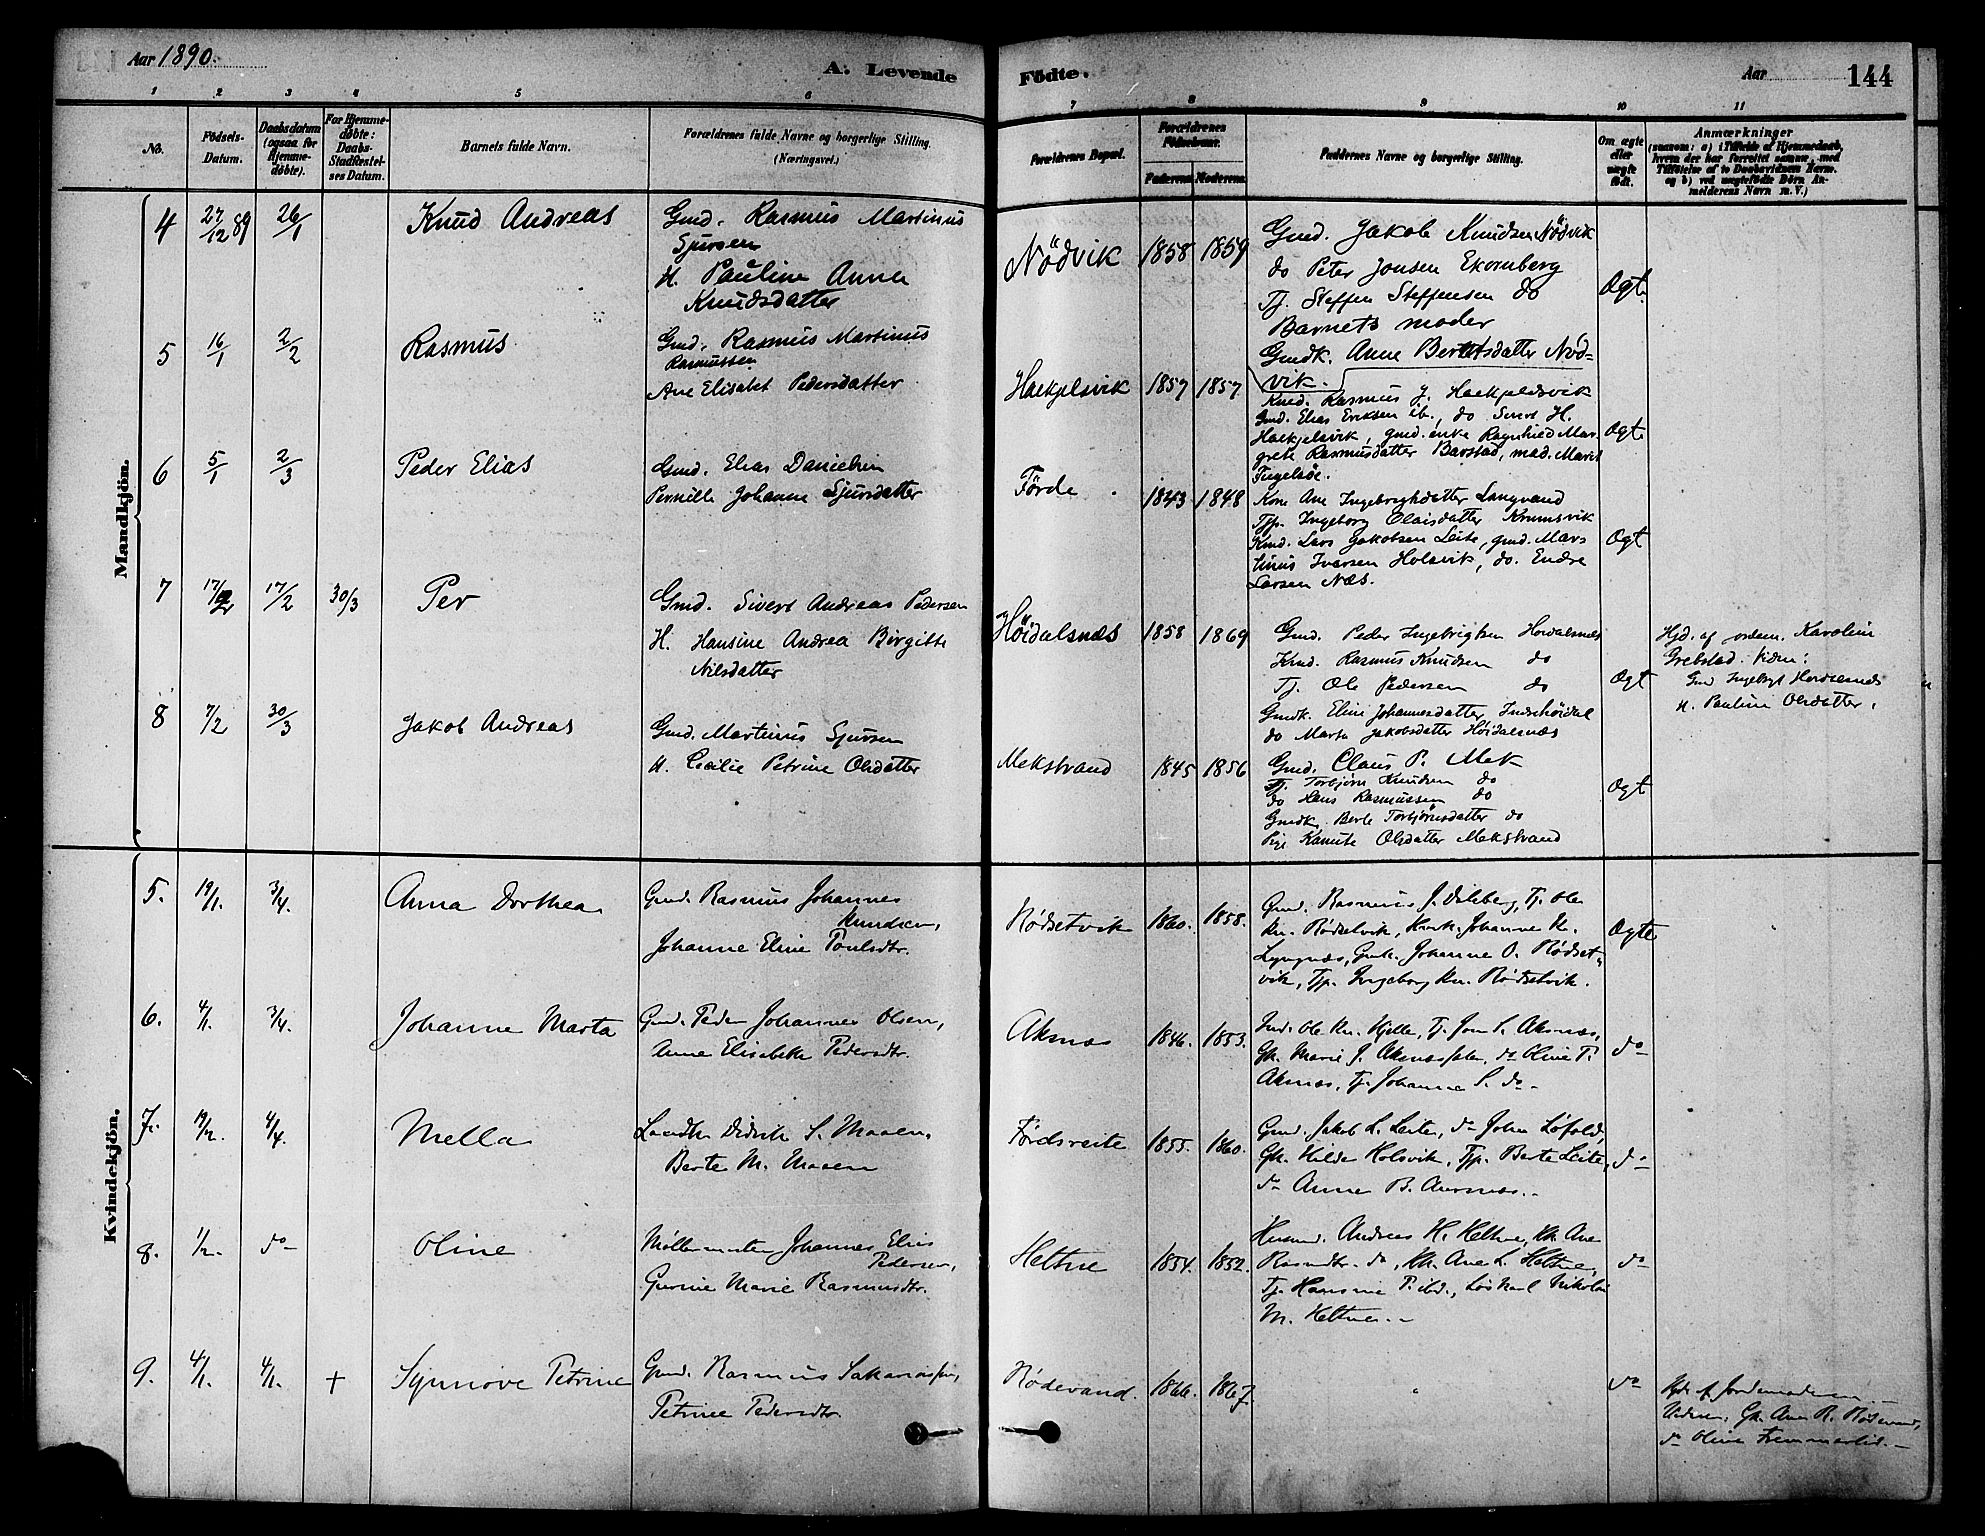 Aar 1890.
A. Levende
Fødte.
Aar
144
1 2 3 4 5 6 7 8 9 10 11
No.
Fødsels-
Datum.
Daabsdatum
(ogsaa for
Hjemme-
døbte).
For Hjemme-
døbte:
Daabs-
Stadfæstel-
ses Datum.
Barnets fulde Navn.
Forældrenes fulde Navne og borgerlige Stilling.
(Næringsvei.)
Forældrenes Bopæl.
Forældrenes
Fødselsaar.
Faderens Moderens
Faddernes Navne og borgerlige Stilling.
Om ægte
eller
uægte
født.
Anmærkninger
(saasom: a) i Tilfælde af Hjemmedaab,
hvem der har forrettet samme, med
Tilføielse af to Daabsvidners Navne.
og b) ved uægtefødte Børn An-
melderens Navn m. V.)
Mandkjön.
4
27/12 89
26/1
Knud Andreas
Gmd. Rasmus Martinus
Sjursen
H. Pauline Anna
Knudsdatter
Nödvik
1858
1859
Gmd. Jakob Knudsen Nödvik
do Peter Jonsen Ekornberg
Tj. Steffen Steffensen do
Barnets moder
Gmdk. Anne Berntsdatter Nød-
vik.
Ægt.
5
16/1
2/2
Rasmus
Gmd. Rasmus Martinus
Rasmussen
Ane Elisabet Pedersdatter
Hækjelsvik
1857
1857
Rasmus J. Hækjeldsvik
Gmd. Elias Eriksen ib., do Sivert H.
Hækjelsvik, gmd. enke Ragnhild Mar-
grete Rasmusdatter Barstad, mad. Marit
Ægt.
6
5/1
2/3
Peder Elias
Gmd. Elias Danielsen
Pernille Johanne Sjursdatter
Förde
1843
1848
Kone Ane Ingebrigtsdatter Langvand
Tjp. Ingeborg Olaisdatter Krumsvik
Lars Jakobsen Leite, gmd. Mar-
tinus Iversen Holsvik, do. Endre
Larsen Næs.
Ægt
7
17/2
17/2
30/3
Per
Gmd. Sivert Andreas Pedersen
H. Hansine Andrea Birgitte
Nilsdatter
Höidalsnæs
1858
1869
Gmd. Peder Ingebrigtsen Hoidalsnæs
Rasmus Knudsen do
Tj. Ole Pedersen do
Gmdk. Eline Johannesdatter Indrehöidal
do Marta Jakobsdatter Höidalsnæs
Ægt
Hjd. af Jordem. Karoline
Grebstad. Vidne:
Gmd Ingebrgt Hoidalsnæs
H. Pauline Olsdatter.
8
7/2
30/3
Jakob Andreas
Gmd. Martinus Sjursen
H. Cecilie Petrine Olsdatter
Mekstrand
1845
1856
Gmd. Claus P. Mek
Tj. Torbjörn Knudsen do
do Hans Rasmussen do
Gmdk. Berte Torbjörnsdatter do
Pige Kanute Olsdatter Mekstrand
Ægt
Kvindekjön.
5.
19/1.
3/4.
Anna Dorthea
Gmd. Rasmus Johannes
Knudsen,
Johanne Eline Poulsdtr.
Rødsetvik
1860.
1858.
Gmd. Rasmus J. Dileberg, Tj. Ole
Kn. Rødsetvik, Johanne K.
Lyngnæs, Gmk. Johanne O. Rødset-
vik, Tjp. Ingeborg Kn. Rødsetvik.
Ægte
6.
4/1.
3/4.
Johanne Marta
Gmd. Peder Johannes Olsen,
Anne Elisabeth Pedersdtr.
Aksnæs
1846.
1853.
Gmd. Ole Kn. Hjelle, Tj. Jon S. Aksnæs,
Gk. Marie J. Aksnæs, do Oline P.
Aksnæs, Tj. Johanne S. do.
do
7.
19/2.
4/4.
Mella
Didrik S. Maaen,
Berte M. Maaen
Førdsreite
1855.
1860.
Gmd. Jakob L. Leite, do John Løfold,
Gk. Hilde Holsvik, Tjp. Berte Leite,
do Anne B. Aursnæs.
do
8.
1/2.
do
Oline
Møllermester Johannes Elias
Pedersen,
Gurine Marie Rasmusdtr.
Heltne
1854.
1852.
Husmd. Andreas H. Heltne, Kk. Ane
Rasmdtr. do, Kk. Ane L. Heltne,
Tj. Hansine P. ibd., Løskarl Nikolai
M. Heltne.
do
9.
4/1.
4/1.
+
Synnove Petrine
Gmd. Rasmus Sakariassen,
Petrine Pedersdtr.
Rødevand.
1866.
1867.
do
Hjd. af Jordemoderen
Vidner: Gk. Ane R. Rødevand,
do Oline Fremmerlid.